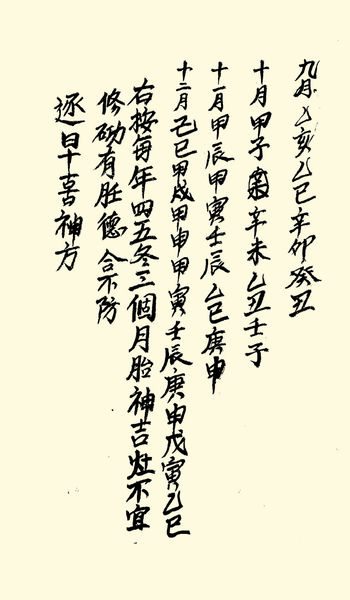 九月乙亥乙巳辛卯癸丑
十月甲子辛未乙丑壬子
十一月甲辰甲寅壬辰乙巳庚申
十二月己巳甲戌甲申甲寅壬辰庚申戊寅乙巳
右按每年四五冬三個月胎神吉灶不宜
修砌有胜德合不防
逐日十喜神方